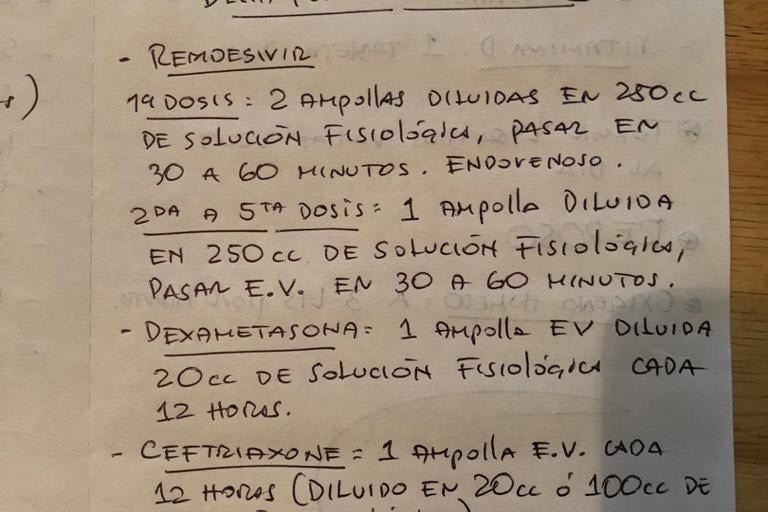 - REMDESIVIR
1a DOSIS: 2 AMPOLLAS DILUIDAS EN 250cc
DE SOLUCIÓN FISIOLÓGICA, PASAR EN
30 A 60 MINUTOS. ENDOVENOSO.
2DA A 5TA DOSIS = 1 AMPOLLA DILUIDA
EN 250cc DE SOLUCIÓN FISIOLÓGICA,
PASAR E.V. EN 30 A 60 MINUTOS.
- DEXAMETASONA = 1 AMPOLLA EV DILUIDA
20cc DE SOLUCIÓN FISIOLÓGICA CADA
12 HORAS.
- CEFTRIAXONE = 1 AMPOLLA E.V. CADA
12 HORAS (DILUIDO EN 20cc ó 100cc DE